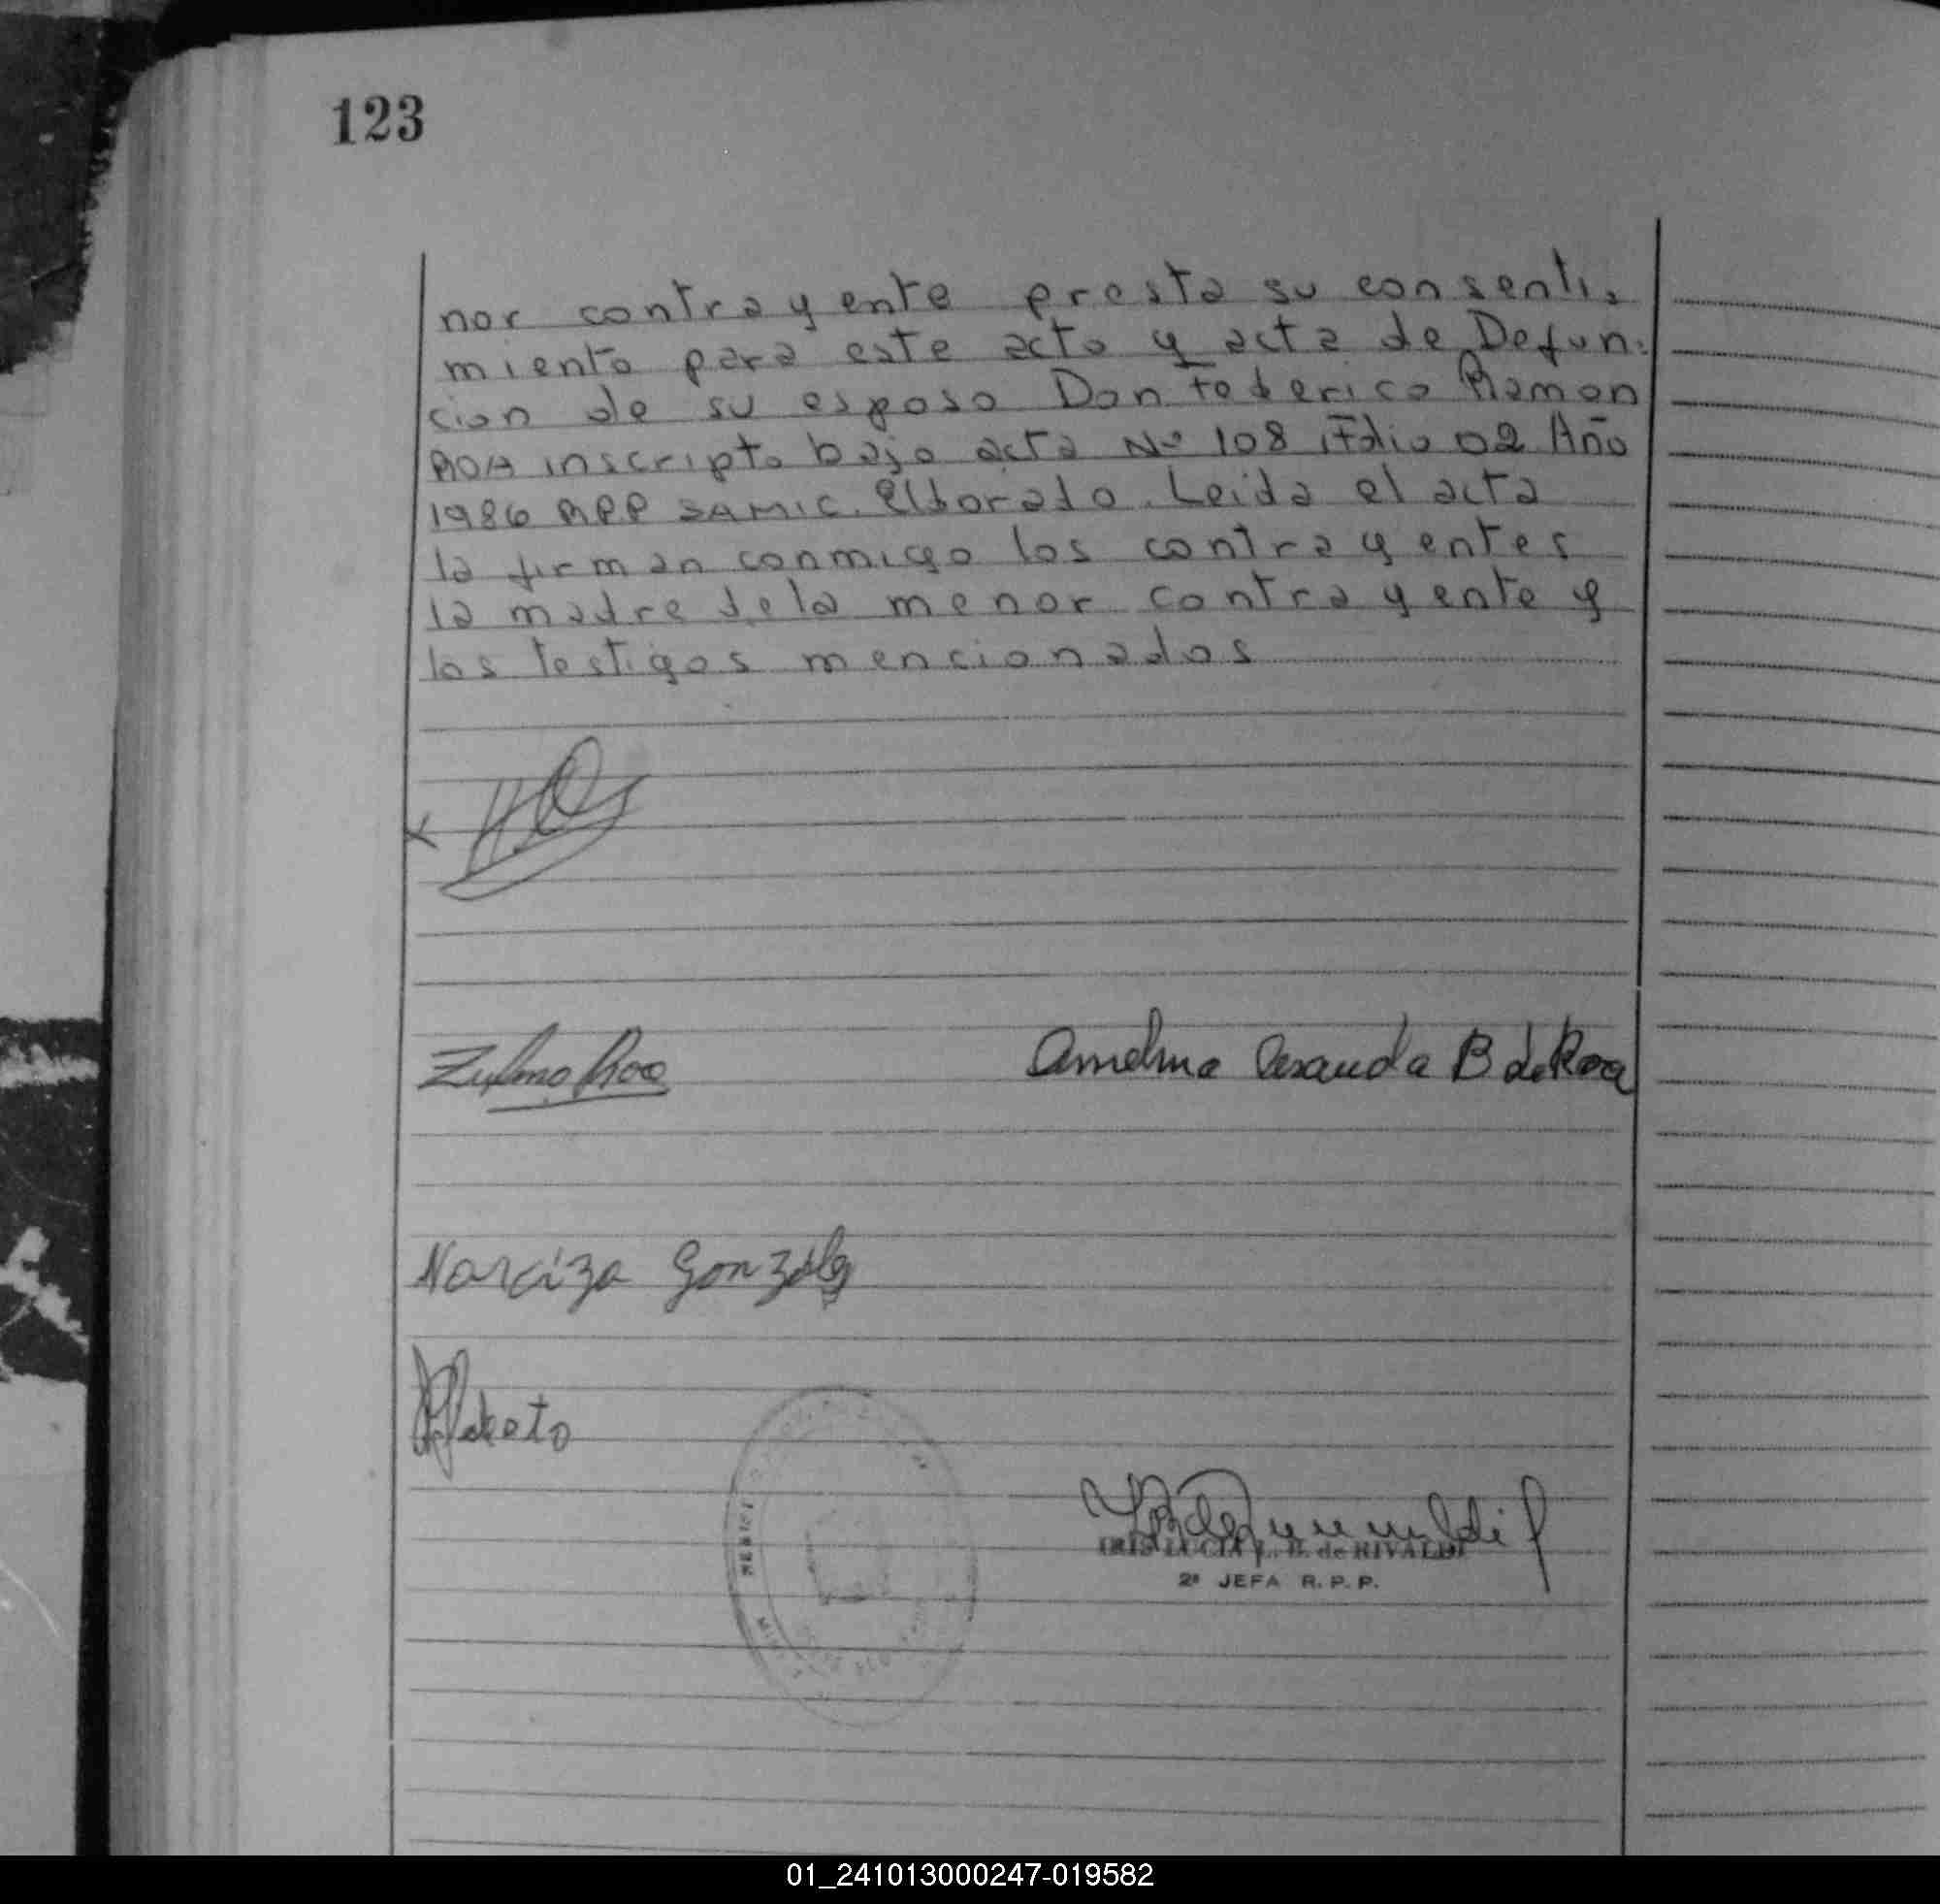 123
nor contrayente presta su consenti-
miento para este acto y acta de Defun-
cion de su esposo Don Federico Ramon
ROA inscripto bajo acta Nº 108 Folio 02 Año
1986 RPP SAMIC. Eldorado. Leida el acta
la firman conmigo los contrayentes
la madre de la menor contrayente y
los testigos mencionados
Zulma Roa
Amelma Aranda B de Roa
Narciza González
IRIS LUCIA de RIVALDI
2ª JEFA R.P.P.
01_241013000247-019582